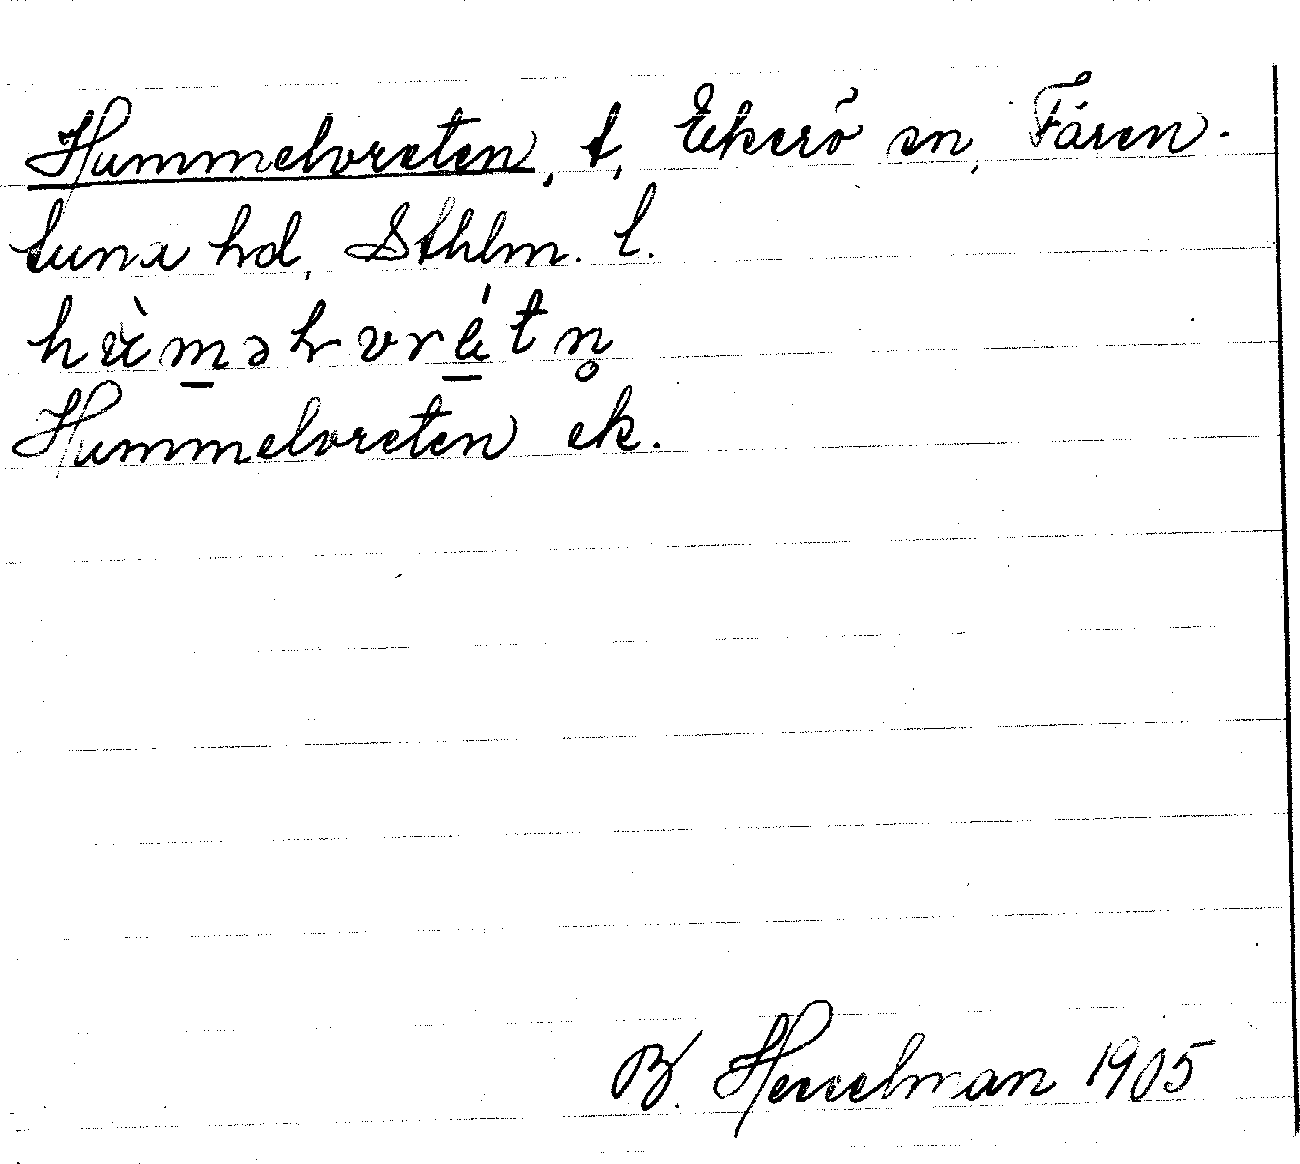 Hummelvreten, t, Ekerö sn, Fären-
tuna hd, Sthlm. l.
Hummelvreten ek.
B. Hesselman 1905